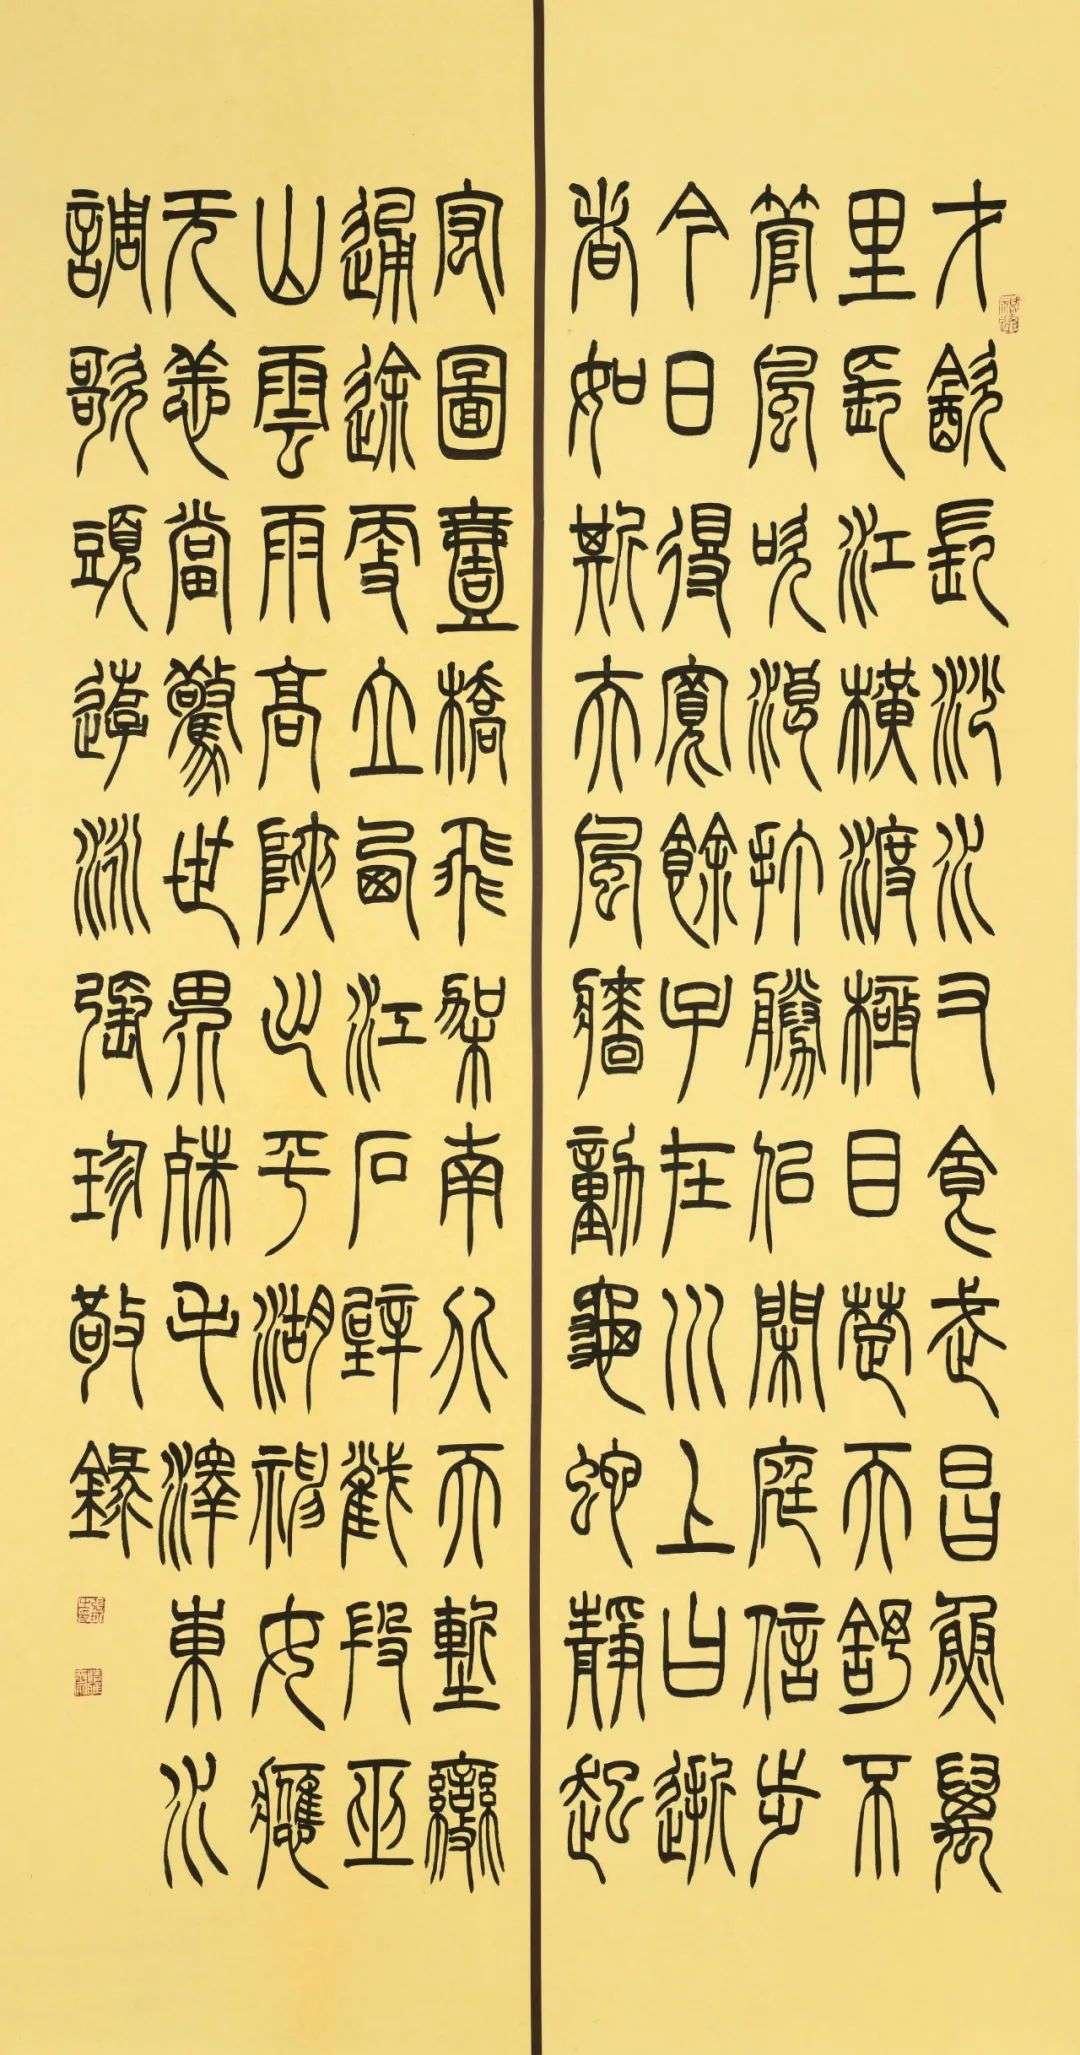 才飲長沙水又食武昌魚萬
里長江橫渡極目楚天舒不
管風吹浪打勝似閑庭信步
今日得寬餘子在川上曰逝
者如斯夫風檣動龜蛇靜起
宏圖壹橋飛架南北天塹變
通途更立西江石壁截段巫
山雲雨高陝出平湖神女應
无恙當驚世界殊毛澤東水
調歌頭遊泳珍敬錄